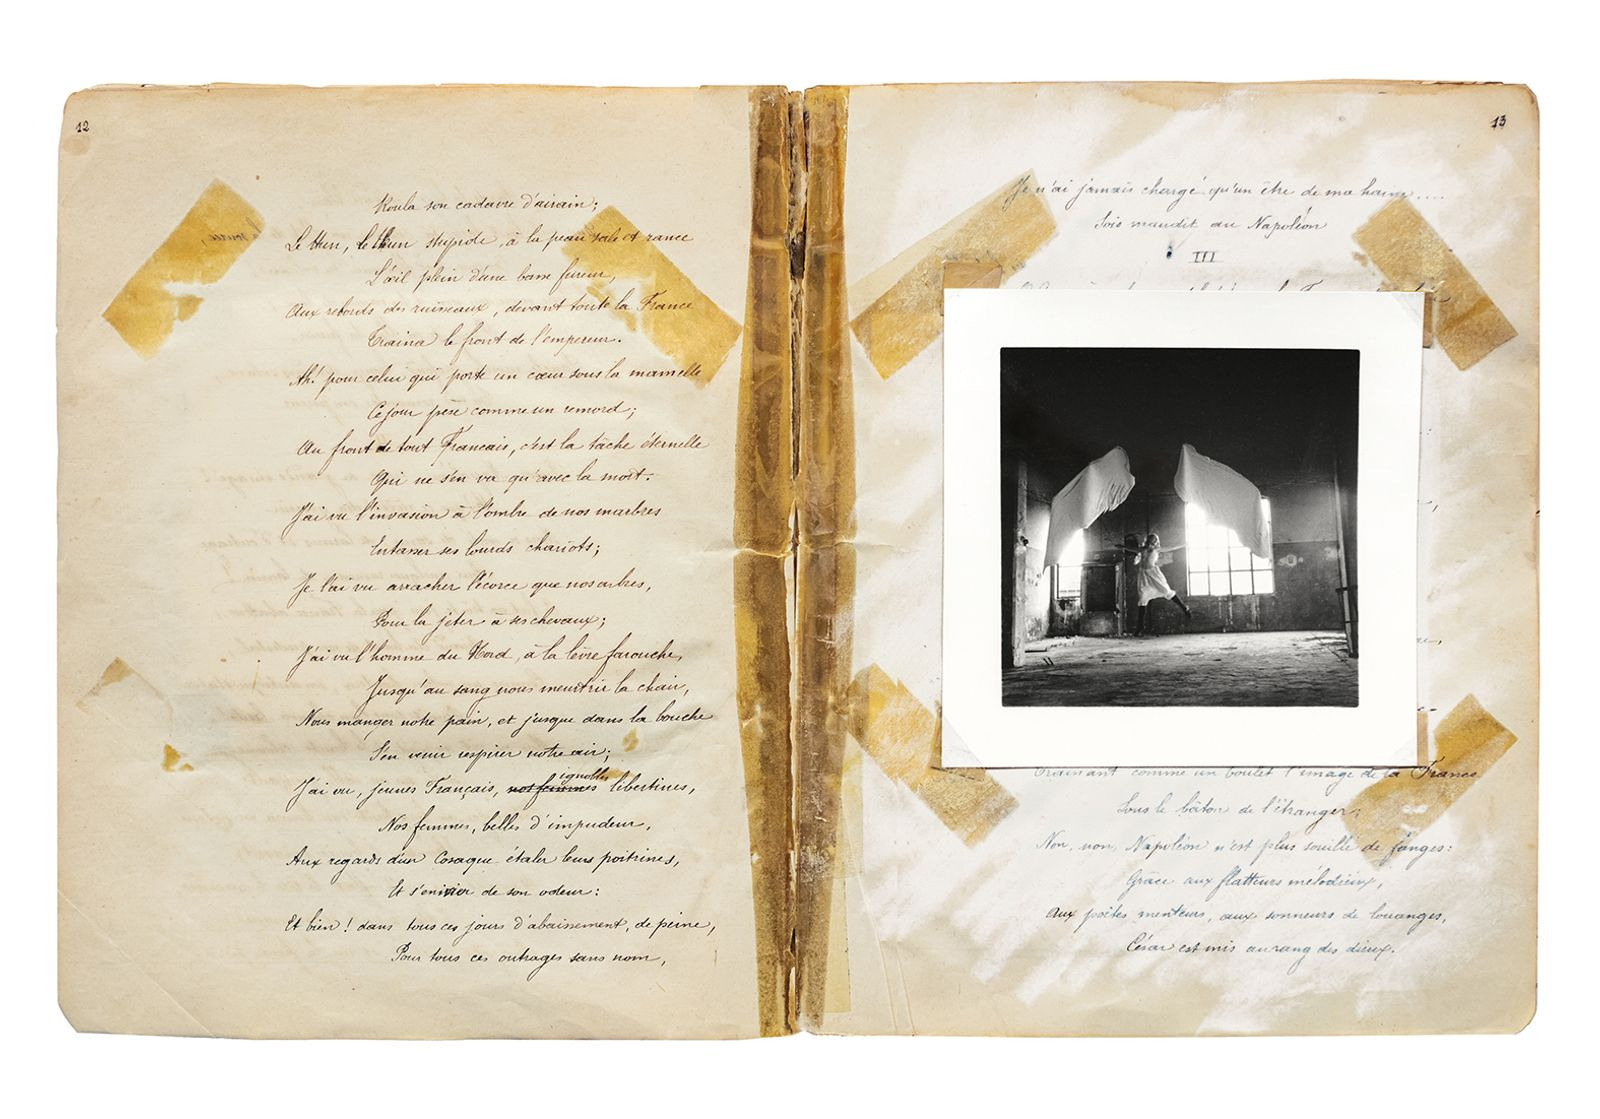 12
Roula son cadavre d'airain;
Le Hun, le Hun stupide, à la peau sale et rance
L'œil plein d'une basse fureur,
Aux rebords des ruisseaux, devant toute la France
Traina le front de l'empereur.
Ah! pour celui qui porte un cœur sous la mamelle
Ce jour pèse comme un remord;
Au front de tout Français, c'est la tâche éternelle
Qui ne s'en va qu'avec la mort.
J'ai vu l'invasion à l'ombre de nos marbres
Entasser ses lourds chariots;
Je l'ai vu arracher l'écorce que nos arbres,
Pour la jeter à ses chevaux;
J'ai vu l'homme du Nord, à la lèvre farouche,
Jusqu'au sang nous meurtrir la chair,
Nous manger notre pain, et jusque dans la bouche
S'en venir respirer notre air;
ignobles
J'ai vu, jeunes Français, nos femmes libertines,
Nos femmes, belles d'impudeur,
Aux regards d'un Cosaque étaler leurs poitrines,
Et s'enivrer de son odeur:
Et bien! dans tous ces jours d'abaissement, de peine,
Pour tous ces outrages sans nom,
13
Je n'ai jamais chargé qu'un être de ma haine....
Sois maudit au Napoléon
III
Trainant comme un boulet l'image de la France
Sous le bâton de l'étranger.
Non, non, Napoléon n'est plus souillé de fanges:
Grâce aux flatteurs mélodieux,
Aux poètes menteurs, aux sonneurs de louanges,
César est mis au rang des dieux.